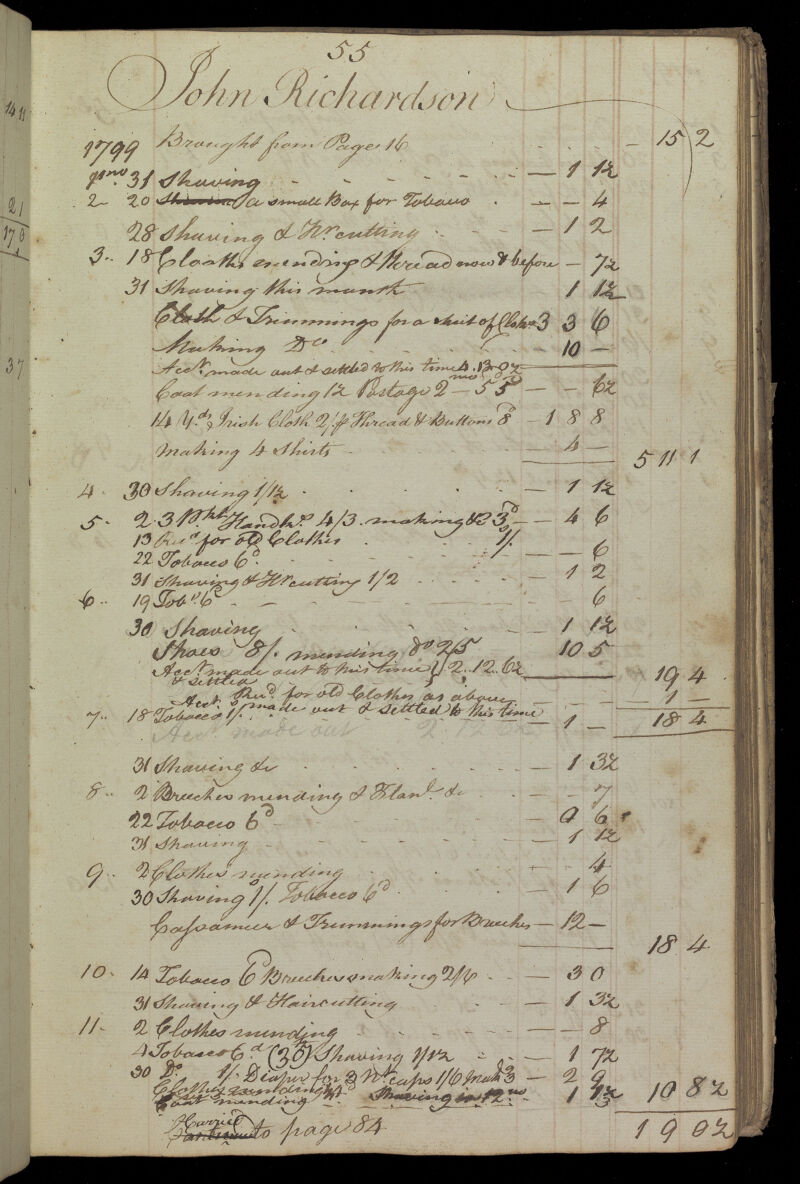 14 11
21
17 0
37
55
John Richardson
1799 Brought from Page 16 - 15 2
1mo. 31 Shaving - 1 1½
2 - 20 a small Box for Tobaco - - 4
28 Shaving & Hr. cutting - 1 2
3 - 18 Cloaths mending & thread now & before - 7½
31 Shaving this month 1 1½
Cloth & Trimmings for a Suit of Clothes 3 3 6
Making Do 10 -
Acct. made out & settled to this time 4.13.0½
Coat mending 1½ Postage 2mo - 5 5d - - 6½
14 Yds. Irish Cloth 2/ Thread & Buttons 8d - 1 8 8
making 4 Shirts - 4 -
5 11 1
4 - 30 Shaving 1/1½ - 1 1½
5 - 2 3 Handks. 4/3 making 3d - - 4 6
13 Recd for old Clothes 1/.
22 Tobacco 6d. - - 6
31 Shaving & Hr cutting 1/2 - 1 2
6 - 19 Tobo. 6d - 6
30 Shaving 1 1½
Shoes 8/. mending do 2/5 10 5
Acct. made out to this time } 2..12..6½
& settled
19 4
Recd. for old Clothes as above - 1 -
Acct. made out & settled to this time 18 4
7 - 18 Tobacco 1/. - 1 -
Acct. made out 2 12 6½
31 Shaving &c - 1 3½
8 - 2 Breeches mending & Flanl. &c - - 7
22 Tobacco 6d - 0 6
31 Shaving - 1 1½
9 - 2 Clothes mending - 4
30 Shaving 1/. Tobacco 6d - 1 6
Cassameer & Trimmings for Breeches - 12 -
18 4
10 - 14 Tobacco 6d Breeches making 2/6 - 3 0
31 Shaving & Haircutting - 1 3½
11 - 2 Clothes mending - - 8
4 Tobacco 6d (30th) Shaving 1/1½ - 1 7½
30 Do. 1/. Diaper for 3 Nt caps 1/6 Makg 3 - 2 9
Clothes mending
Coat mending Shaving in 12mo 1 1½
3
10 8½
Carried to page 84
1 9 0½